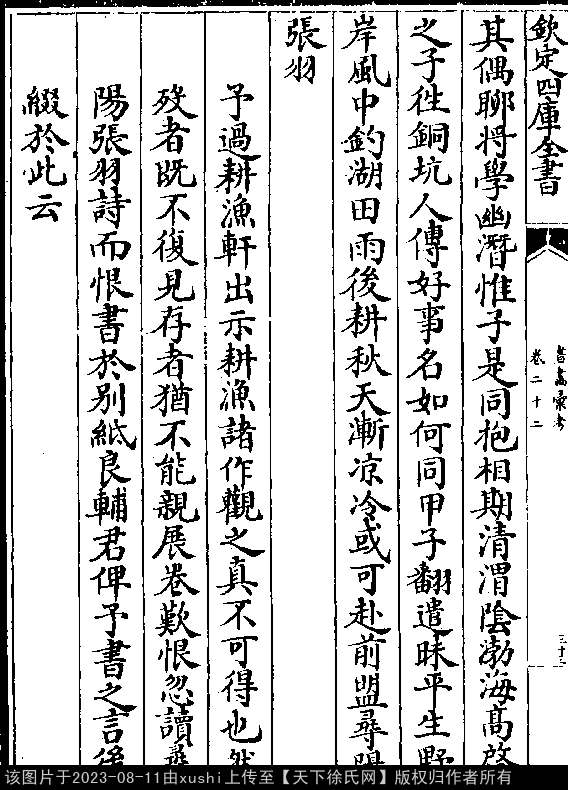 欽定四庫全書
書畫彙考
卷二十二
三十三
其偶聊將學幽潛惟子是同抱相期清渭陰渤海高啓
之子徃銅坑人傳好事名如何同甲子翻遣昧平生野
岸風中釣湖田雨後耕秋天漸凉冷或可赴前盟尋陽
張羽
予過耕漁軒出示耕漁諸作觀之真不可得也然
歿者既不復見存者猶不能親展卷歎恨忽讀尋
陽張羽詩而恨書於别紙良輔君俾予書之言後
綴於此云
该图片于2023-08-11由xushi上传至【天下徐氏网】版权归作者所有